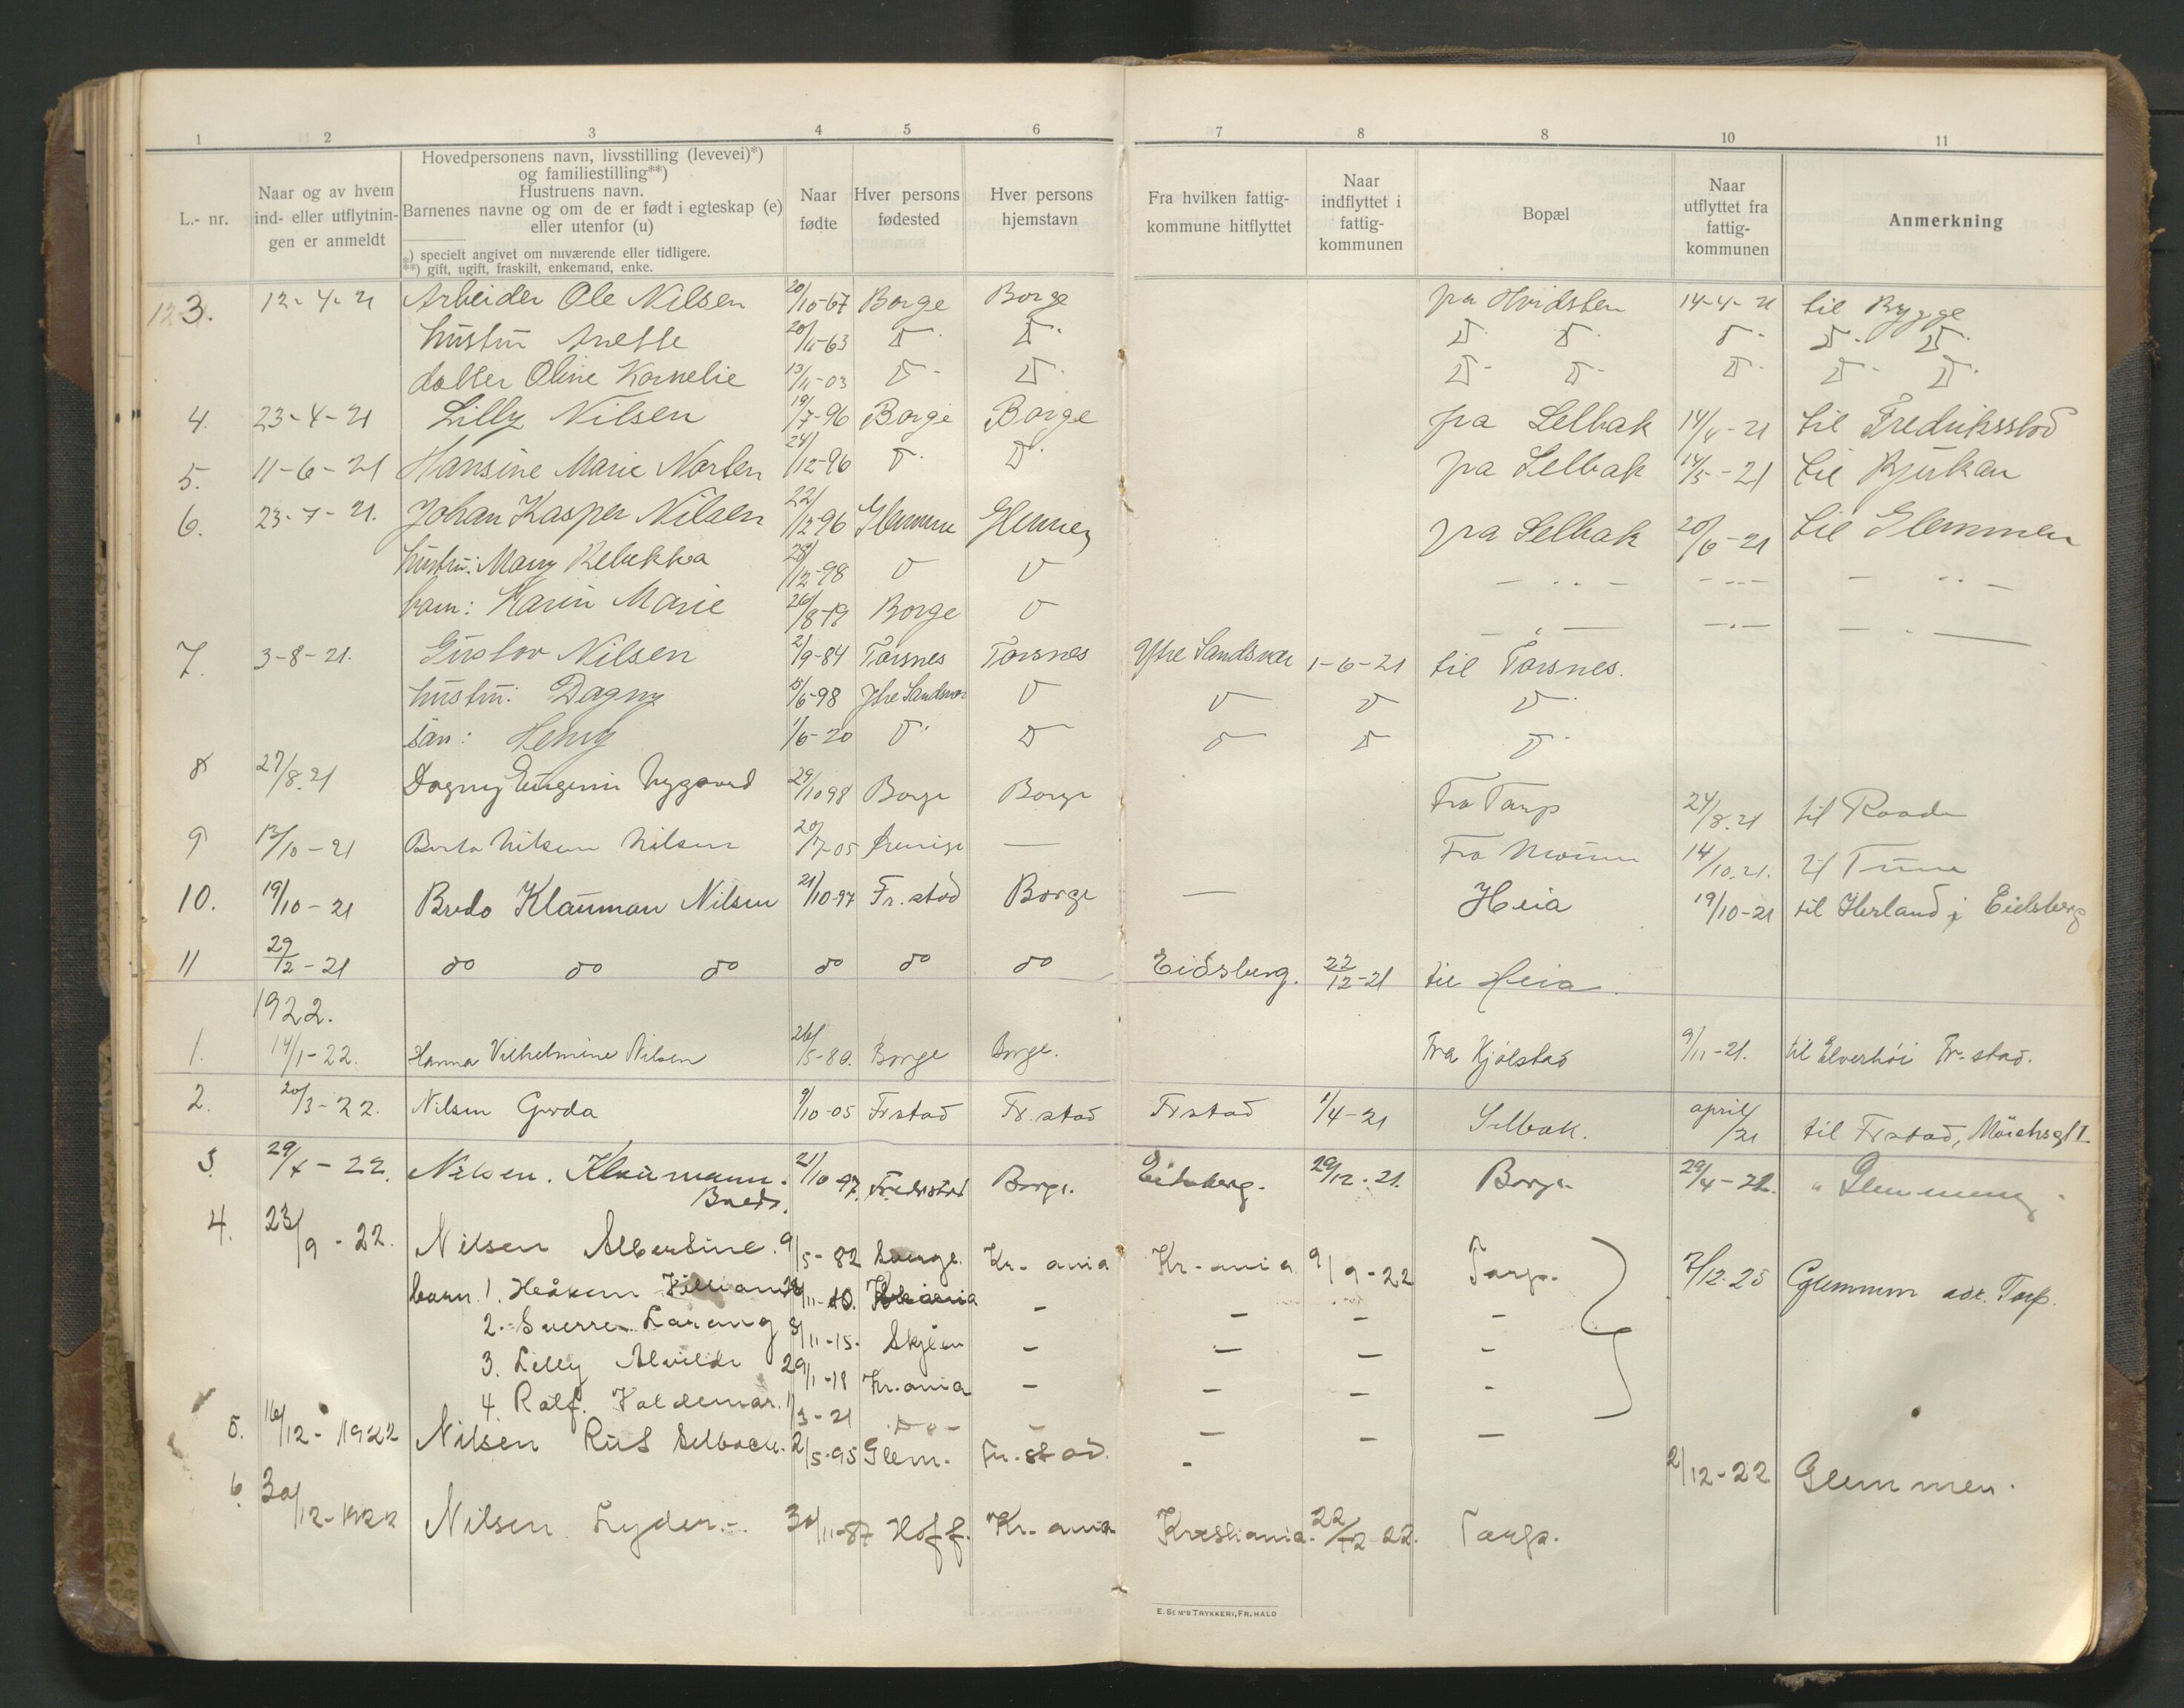 1 2 3 4 5 6 7 8 8 10 11
L.- nr.
Naar og av hvem ind- eller utflytnin- gen er anmeldt
Hovedpersonens navn, livsstilling (levevei)*)
og familiestilling**)
Hustruens navn.
Barnenes navne og om de er født i egteskap (e)
eller utenfor (u)
*) specielt angivet om nuværende eller tidligere.
**) gift, ugift, fraskilt, enkemand, enke.
Naar fødte
Hver persons fødested
Hver persons hjemstavn
Fra hvilken fattig- kommune hitflyttet
Naar indflyttet i fattig- kommunen
Bopæl
Naar utflyttet fra fattig- kommunen
Anmerkning
3. 12-4-21 Arbeider Ole Nilsen 20/10-67 Borge Borge pa Hvidsten 14-4-21 til Rygge
hustru Anette 20/11-63 D D D D D D D
datter Oline Kornelie 13/11-03 D D D D D D D
4. 23-4-21 Lilly Nilsen 19/7-96 Borge Borge pa Selbak 14/4-21 til Fredriksstod
5. 11-6-21 Hansine Marie Norten 24/12-96 D D pa Selbak 14/5-21 til Rjukan
6. 23-7-21. Johan Kasper Nilsen 22/12-96 Glemmen Glemmen pa Selbak 20/6-21 til Glemmen
hustru: Mary Rebekka /12-98 D D - .. - - .. - - .. -
barn: Karin Marie 26/8-19 Borge D - . - - . - - . -
7. 3-8-21. Gustav Nilsen 2/9-84 Torsnes Torsnes Ytre Sandsvær 1-6-21 til Torsnes.
hustru: Dagny 15/6-98 Ytre Sandsvær D D D D
sän: Henry 1/6-20 D D D D D
8 27/8.21 Dagny Eugenie Nygaard 29/10 98 Borge Borge Fra Torp 24/8.21 til Raade
9 13/10-21 Berta Nilsen Nilsen 20/7-05 — Fra Moum 14/10.21. til Tune
10. 19/10-21 Bredo Klaumau Nilsen 21/10-97 Fr.stad Borge — Heia 19/10-21 til Herland i Eidsberg
11 29/12-21 do do do do do do Eidsberg. 22/12-21 til Heia.
1922.
1. 14/1-22. Hanna Vilhelmine Nilsen 26/5-80. Borge Borge. Fra Kjølstad 9/11-21. til Elverhöi Fr.stad.
2. 20/3-22. Nilsen Gerda 9/10-05 Frstad Fr.stad Frstad 1/4-21 Selbak. april/21 til Frstad,
3. 29/4-22. Nilsen. Klaumann. 21/10-97. Fredrstad Borge. Eidsberg. 29/12.21. Borge. 29/4-22. " Glemmeng
Bredo.
4. 23/9-22. Nilsen Albertine. 9/5-82 Borge. Kr-ania Kr-ania 9/9-22 Torp. 7/12.25 Glemmen adr. Torp.
barn. 1. Håkon Villiam /11-10. Kr.ania - - - -
2. Sverre 8/11-15. Skjeen - - - -
3. Lilly Alvilde 29/1-18 Kr.ania - - - -
4. Ralf. Valdemar. 1/3-21 -Do- - - - -
5. 16/12-1922 Nilsen Rut Selbak. 2/5-95 Glem. Fr.stad. - 2/12-22 Glemmen.
6. 30/12-1922 Nilsen Lyder.-. 30/11-87 Hoff. Kr-ania Kristiania. 22/12 22. Torp.
E. SEM'S TRYKKERI, FR.HALD